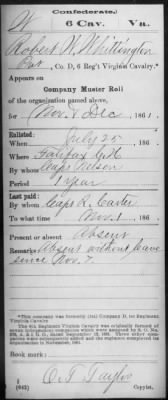 Confederate.
W 6 Cav. Va.
Robert H. Whittington
Pvt, Co. D, 6 Reg't Virginia Cavalry.*
Appears on
Company Muster Roll
of the organization named above,
for Nov & Dec, 1861.
Enlisted:
When July 25, 186
Where Fairfax C.H.
By whom Capt Nelson
Period 1 year
Last paid:
By whom Capt R. Carter
To what time Nov. 1, 186
Present or absent Absent
Remarks: Absent without leave
since Nov. 7.
Book mark:
(642)